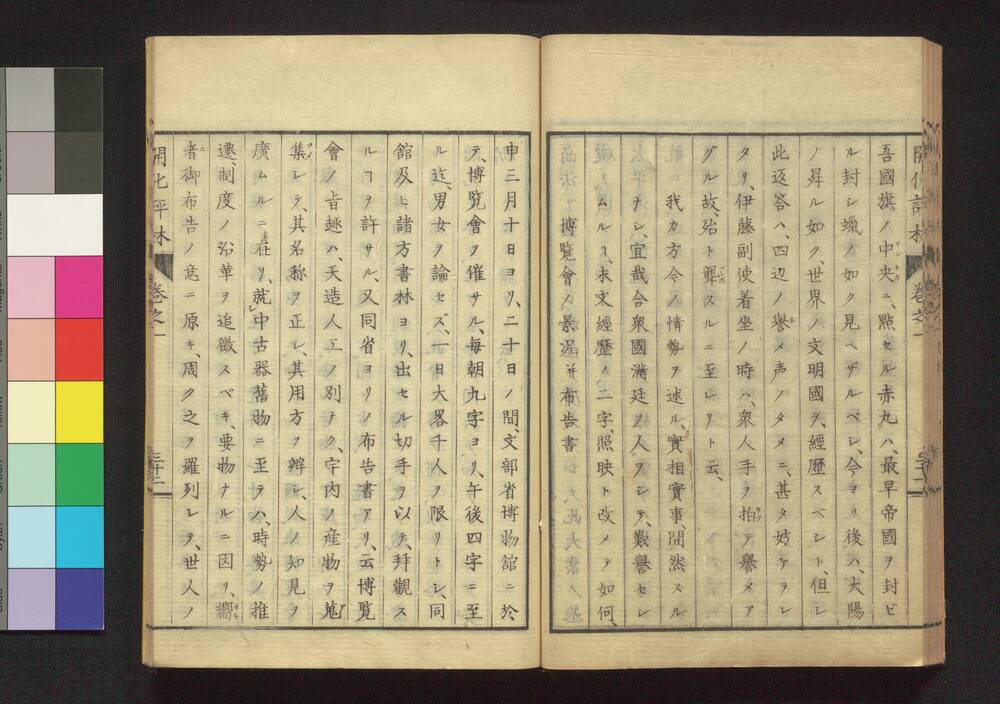 開化評林 巻之一
吾國旗ノ中央ニ、點セル赤丸ハ、最早帝國ヲ封ビ
ル封シ蠟ノ如ク見ヘザルベシ、今ヨリ後ハ、大陽
ノ昇ル如ク、世界ノ文明國ヲ、經歴スベシト、但シ
此返答ハ、四辺ノ譽メ声ノタメニ、甚タ妨ケラレ
タリ、伊藤副使着坐ノ時ハ、衆人手ヲ拍テ、譽メア
グル故、殆ト聾スルニ至レリト云、
我カ方今ノ情勢ヲ述ル、實相實事、間然スル
ナシ、宜哉合衆國滿廷ノ人ヲシテ、歎譽セシ
ムル、末文經歴ノ二字、照映ト改メテ如何、
博覧會ノ景況并布告書
申三月十日ヨリ、二十日ノ間、文部省博物館ニ於
テ、博覧會ヲ催サル、毎朝九字ヨリ、午後四字ニ至
ル迄、男女ヲ論セズ、一日大畧千人ヲ限リトシ、同
舘及ヒ諸方書林ヨリ、出セル切手ヲ以テ、拜觀ス
ルヿヲ許サル、又同省ヨリノ布告書アリ、云博覧
會ノ旨趣ハ、天造人工ノ別ナク、宇内ノ産物ヲ蒐
集シテ、其名称ヲ正シ、其用方ヲ辨シ、人ノ知見ヲ
廣ムルニ在リ、就中古器舊物ニ至テハ、時勢ノ推
遷、制度ノ沿革ヲ追徴スベキ、要物ナルニ因リ、嚮
者御布告ノ意ニ原キ、周ク之ヲ羅列シテ、世人ノ
開化評林 巻之一